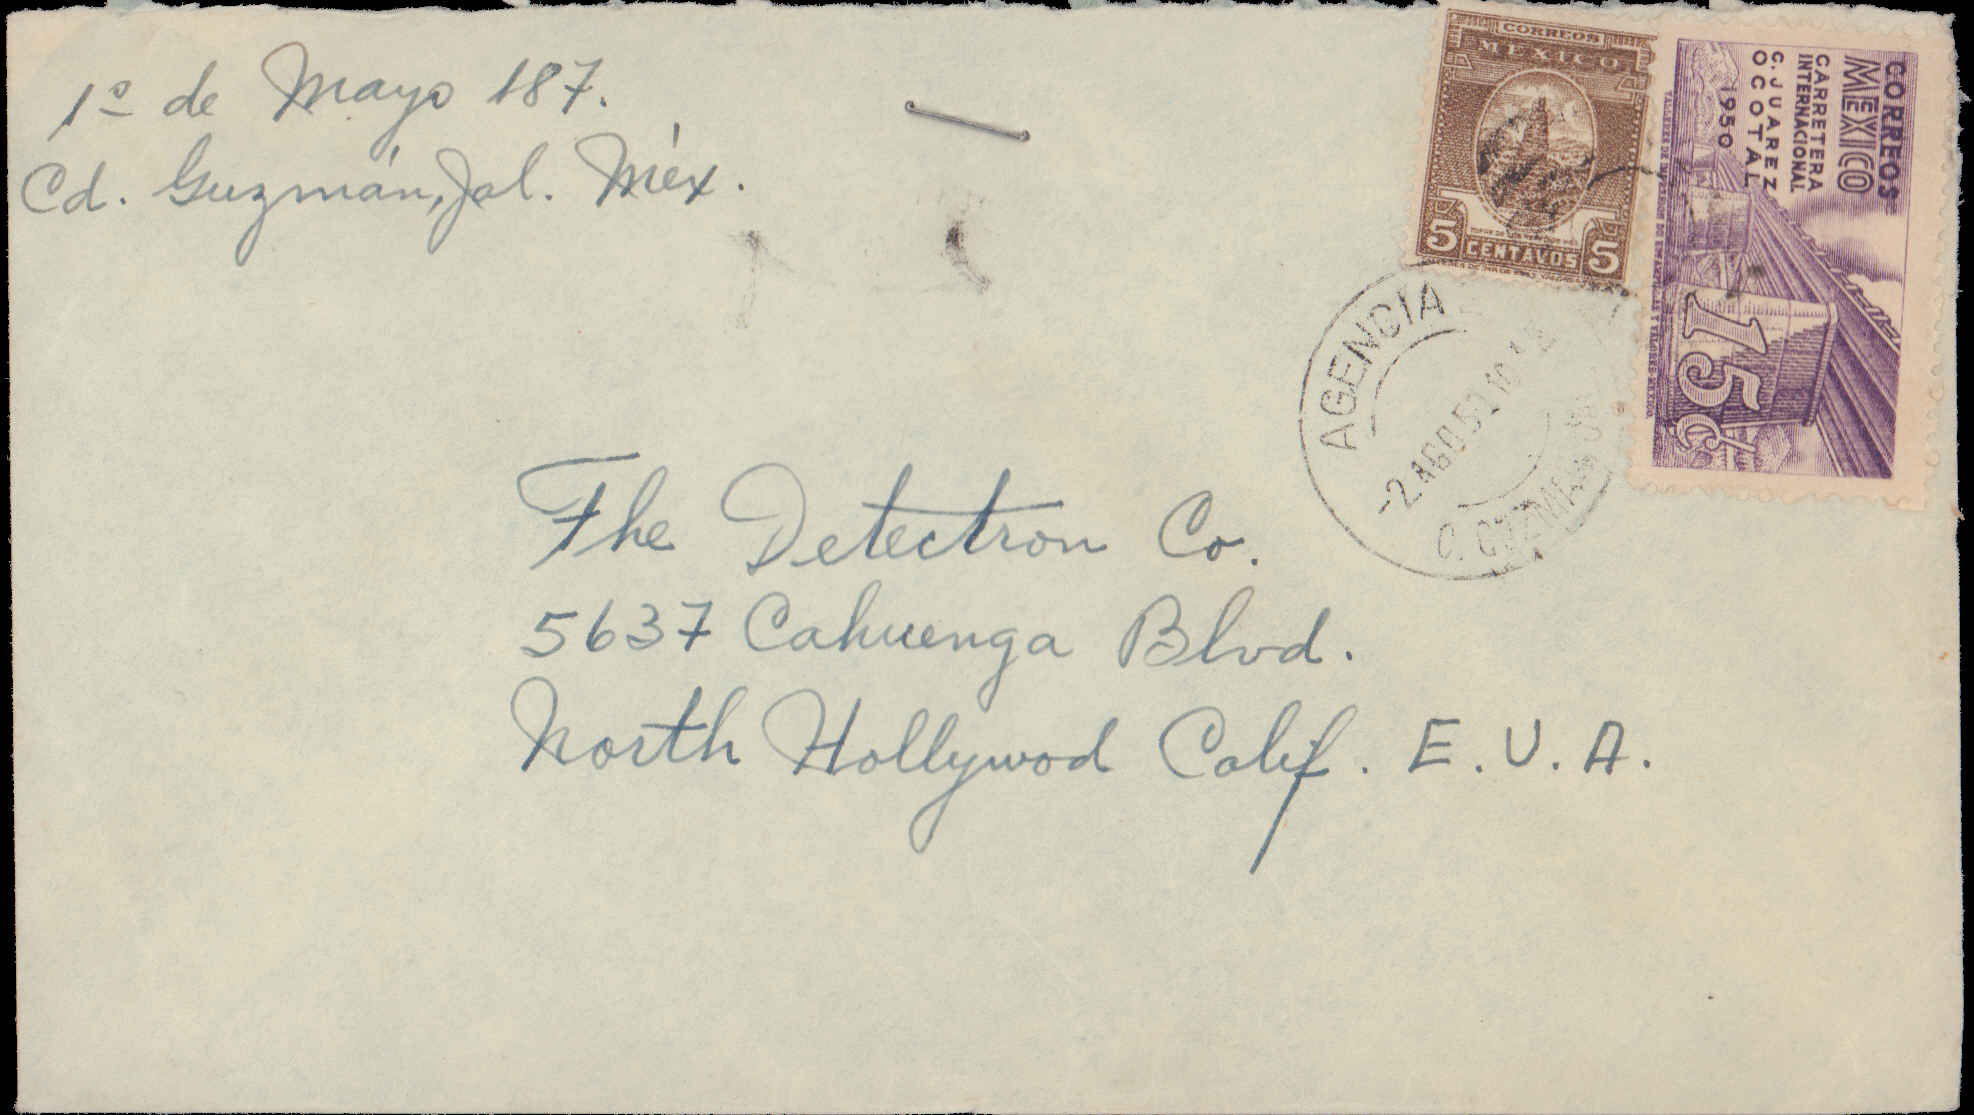 1º de Mayo 187.
Cd. Guzmán, Jal. Méx.
CORREOS
MEXICO
5 CENTAVOS 5
CORREOS
MEXICO
CARRETERA
INTERNACIONAL
C. JUAREZ
OCOTAL
1950
15¢
AGENCIA
-2 AGO 52 10
The Detectron Co.
5637 Cahuenga Blvd.
North Hollywod Calif. E.U.A.